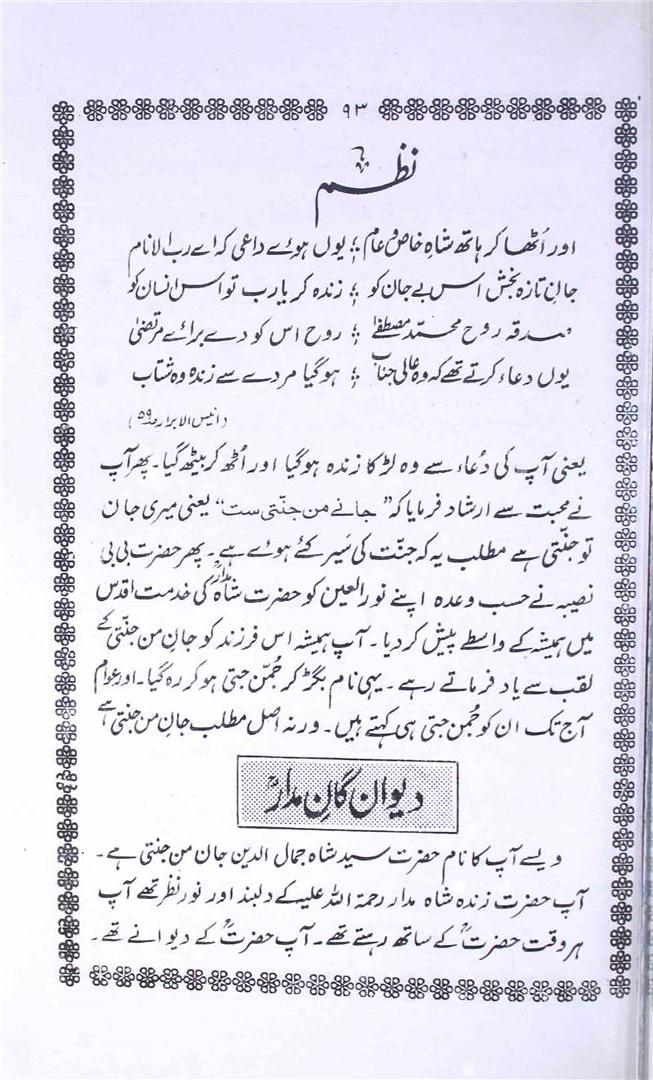 ۹۳
نظم
اور اُٹھا کر ہاتھ شاہِ خاص و عام ؛؛ یوں ہوئے داعی کہ اے رب الانام
جانِ تازہ بخش اس بے جان کو ؛؛ زندہ کر یارب تو اس انسان کو
صدقہ روح محمد مصطفےٰ ؛؛ روح اس کو دے برائے مرتضیٰ
یوں دعاء کرتے تھے کہ وہ عالی جناب ؛؛ ہو گیا مردے سے زندہ وہ شتاب
(انیس الابرار ص۵۹)
یعنی آپ کی دُعاء سے وہ لڑکا زندہ ہو گیا اور اُٹھ کر بیٹھ گیا۔ پھر آپ
نے محبت سے ارشاد فرمایا کہ ”جانے من جنّتی ست“ یعنی میری جان
تو جنّتی ہے مطلب یہ کہ جنّت کی سَیر کئے ہوئے ہے۔ پھر حضرت بی بی
نصیبہ نے حسب وعدہ اپنے نور العین کو حضرت شاہ مدارؒ کی خدمت اقدس
میں ہمیشہ کے واسطے پیش کر دیا۔ آپ ہمیشہ اس فرزند کو جانِ من جنّتی کے
لقب سے یاد فرماتے رہے۔ یہی نام بگڑ کر جُمّن جتی ہو کر رہ گیا۔ اور عوام
آج تک ان کو جُمن جتی ہی کہتے ہیں۔ ورنہ اصل مطلب جانِ من جنتی ہے
دیوان گانِ مدارؒ
ویسے آپ کا نام حضرت سید شاہ جمال الدین جان من جنتی ہے۔
آپ حضرت زندہ شاہ مدار رحمۃ اللہ علیہ کے دلبند اور نورِ نظر تھے آپ
ہر وقت حضرتؒ کے ساتھ رہتے تھے۔ آپ حضرتؒ کے دیوانے تھے۔